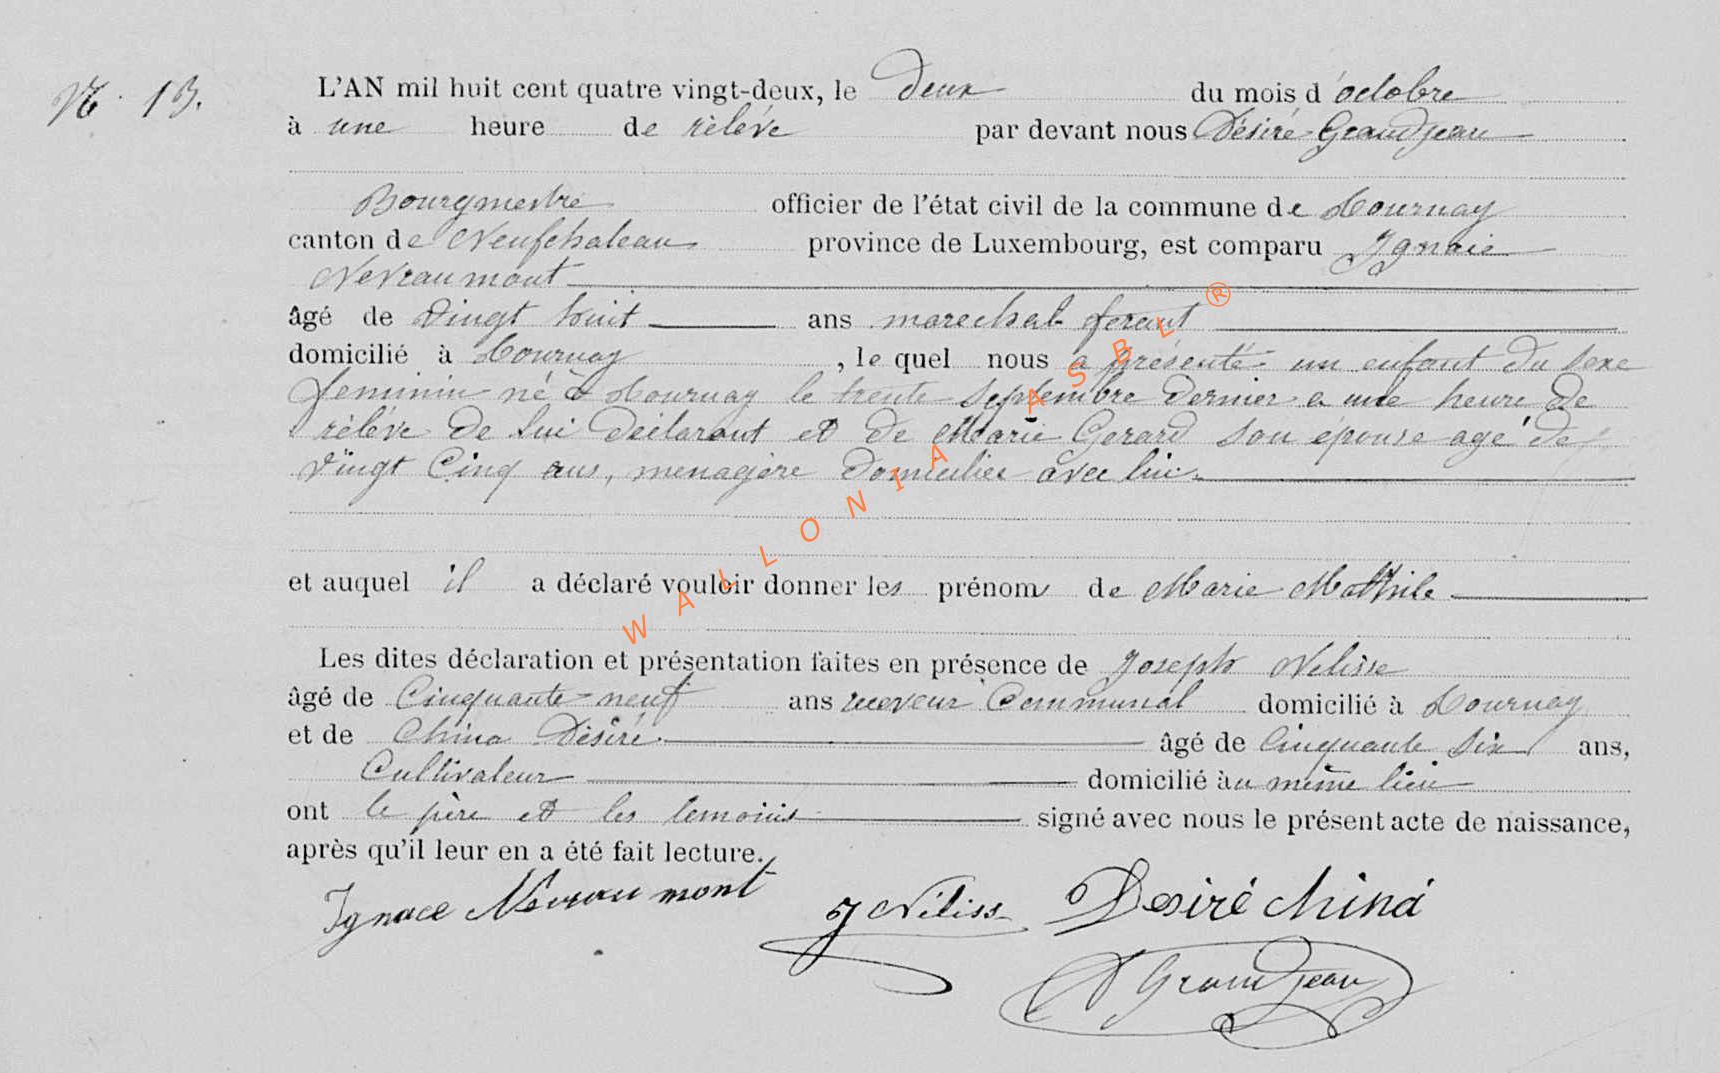 N° 13.
L'AN mil huit cent quatre vingt-deux, le deux du mois d'octobre
à une heure de rélévé par devant nous Désiré Grandjean
Bourgmestre officier de l'état civil de la commune de Tournay
canton de Neufchateau province de Luxembourg, est comparu Ignace
Nevraumont
âgé de vingt huit ans marechal ferant
domicilié à Tournay, le quel nous a présenté un enfant du sexe
feminin né à Tournay le trente septembre dernier a une heure de
rélévé de lui déclarant et de Marie Gerard son épouse agé de
vingt cinq ans, menagère domiciliée avec lui
et auquel il a déclaré vouloir donner les prénoms de Marie Mathile
Les dites déclaration et présentation faites en présence de Joseph Nelisse
âgé de cinquante-neuf ans receveur communal domicilié à Tournay
et de China Désiré âgé de cinquante six ans,
Cultivateur domicilié àu même lieu
ont le père et les temoins signé avec nous le présent acte de naissance,
après qu'il leur en a été fait lecture.
Ignace Nevraumont J Néliss Desiré China
D Grandjean
WALLONIA ASBL ®